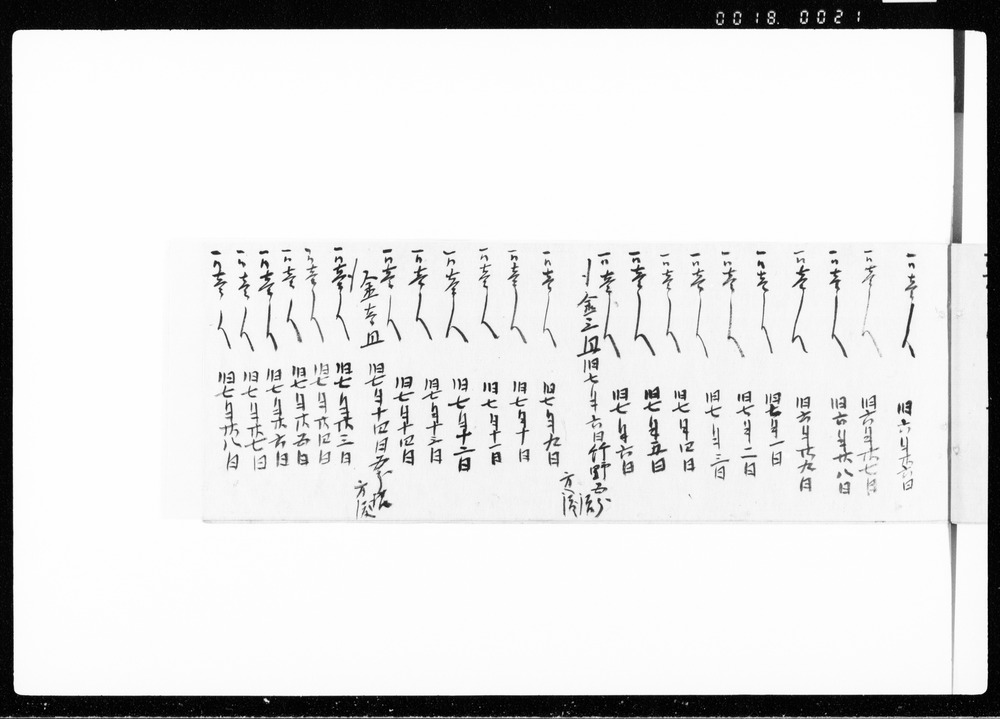 0018. 0021
一同壱人 旧六月廿六日
一同壱人 旧六月廿七日
一同壱人 旧六月廿八日
一同壱人 旧六月廿九日
一同壱人 旧七月一日
一同壱人 旧七月二日
一同壱人 旧七月三日
一同壱人 旧七月四日
一同壱人 旧七月五日
一同壱人 旧七月六日
金三円 旧七月六日竹野
方渡
一同壱人 旧七月九日
一同壱人 旧七月十日
一同壱人 旧七月十一日
一同壱人 旧七月十二日
一同壱人 旧七月十三日
一同壱人 旧七月十四日
金壱円 旧七月十四日
方渡
一同壱人 旧七月廿三日
一同壱人 旧七月廿四日
一同壱人 旧七月廿五日
一同壱人 旧七月廿六日
一同壱人 旧七月廿七日
一同壱人 旧七月廿八日